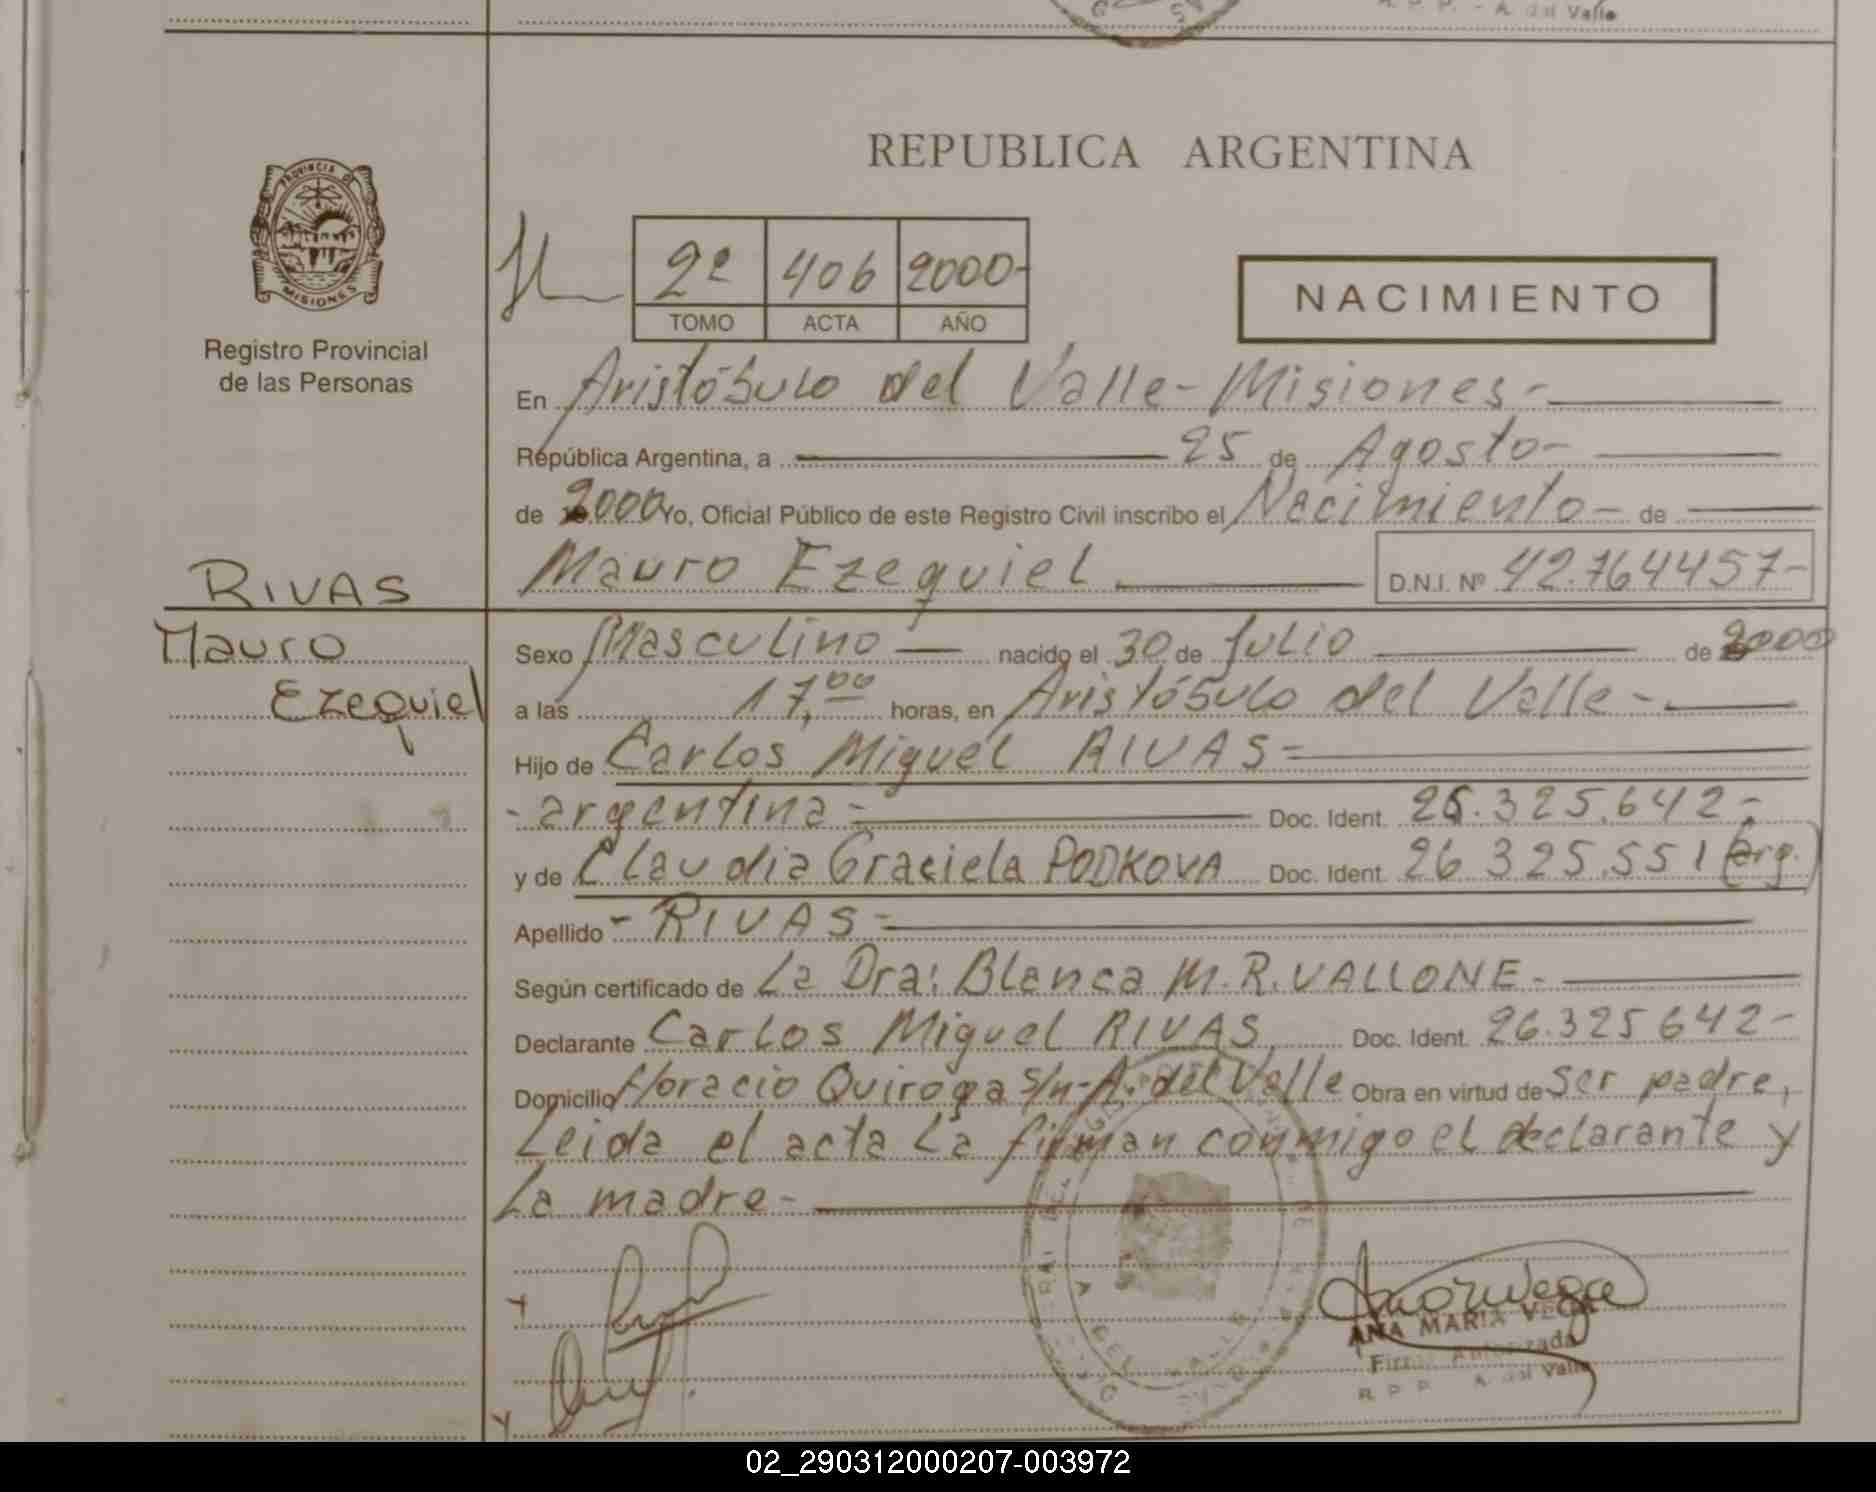 A. del Valle
REPUBLICA ARGENTINA
PROVINCIA DE
MISIONES
Registro Provincial
de las Personas
2º 406 2000-
TOMO ACTA AÑO
NACIMIENTO
En Aristóbulo del Valle - Misiones -
República Argentina, a 25 de Agosto -
de 2000 Yo, Oficial Público de este Registro Civil inscribo el Nacimiento - de
Mauro Ezequiel D.N.I. Nº 42.764457-
RIVAS
Mauro
Ezequiel
Sexo Masculino - nacido el 30 de Julio de 2000
a las 17,00 horas, en Aristóbulo del Valle -
Hijo de Carlos Miguel RIVAS =
- argentina - Doc. Ident. 26.325.642-
y de Claudia Graciela PODKOVA Doc. Ident. 26 325.551 (arg.)
Apellido - RIVAS -
Según certificado de La Dra: Blanca M.R. VALLONE -
Declarante Carlos Miguel RIVAS Doc. Ident. 26.325642-
Domicilio Horacio Quiroga s/n - A. del Valle Obra en virtud de ser padre,
Leida el acta La firman conmigo el declarante y
La madre -
ANA MARIA VEGA
Firma Autorizada
R. P. P. A. del Valle
02_290312000207-003972